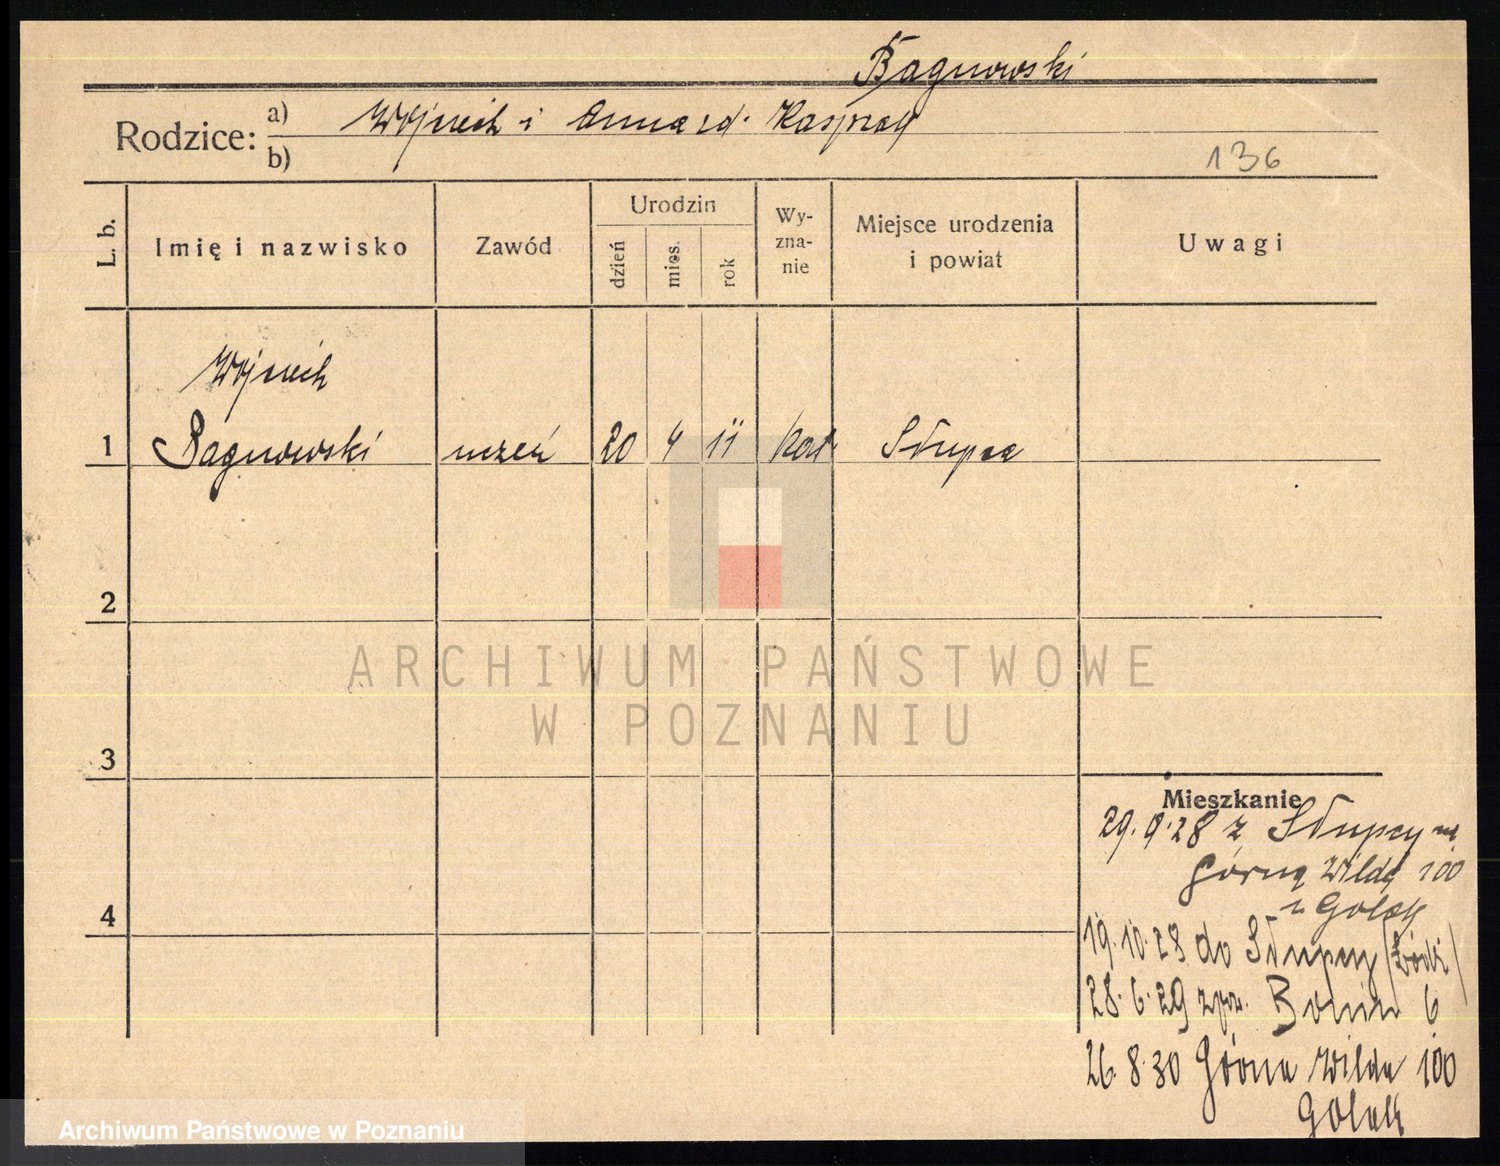 Bagnowski
Rodzice: a) Wojciech i Anna zd. Kasprzak
b)
136
L. b.
Imię i nazwisko
Zawód
Urodzin
dzień
mies.
rok
Wy-
zna-
nie
Miejsce urodzenia
i powiat
Uwagi
Wojciech
1 Bagnowski uczeń 20 4 11 kat. Słupca
2
ARCHIWUM PAŃSTWOWE
W POZNANIU
3
Mieszkanie
29.9.28 z Słupcy na
Górną Wildę 100
Golak
4
19.10.28 do Słupcy
28.6.29 Bonin 6
26.8.30 Górna Wilda 100
Golak
Archiwum Państwowe w Poznaniu